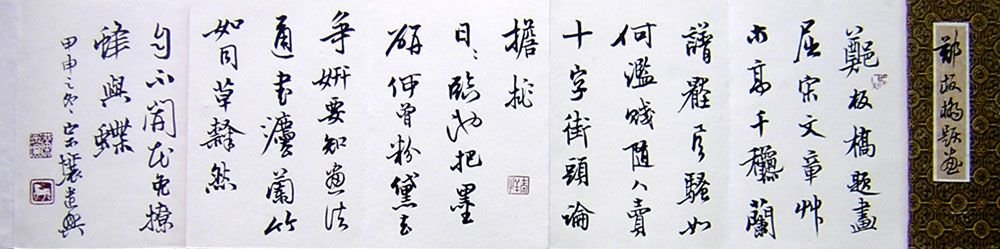 鄭板橋題畫
鄭板橋題畫
屈宋文章艸
木高千穐蘭
譜壓風騷如
何濫賤隨人賣
十字街頭論
擔挑
日:臨池把墨
研何曾粉黛去
爭妍要知畫法
通書灋蘭竹
如同草隸然
自不開花免撩
蜂與蝶
甲申之冬